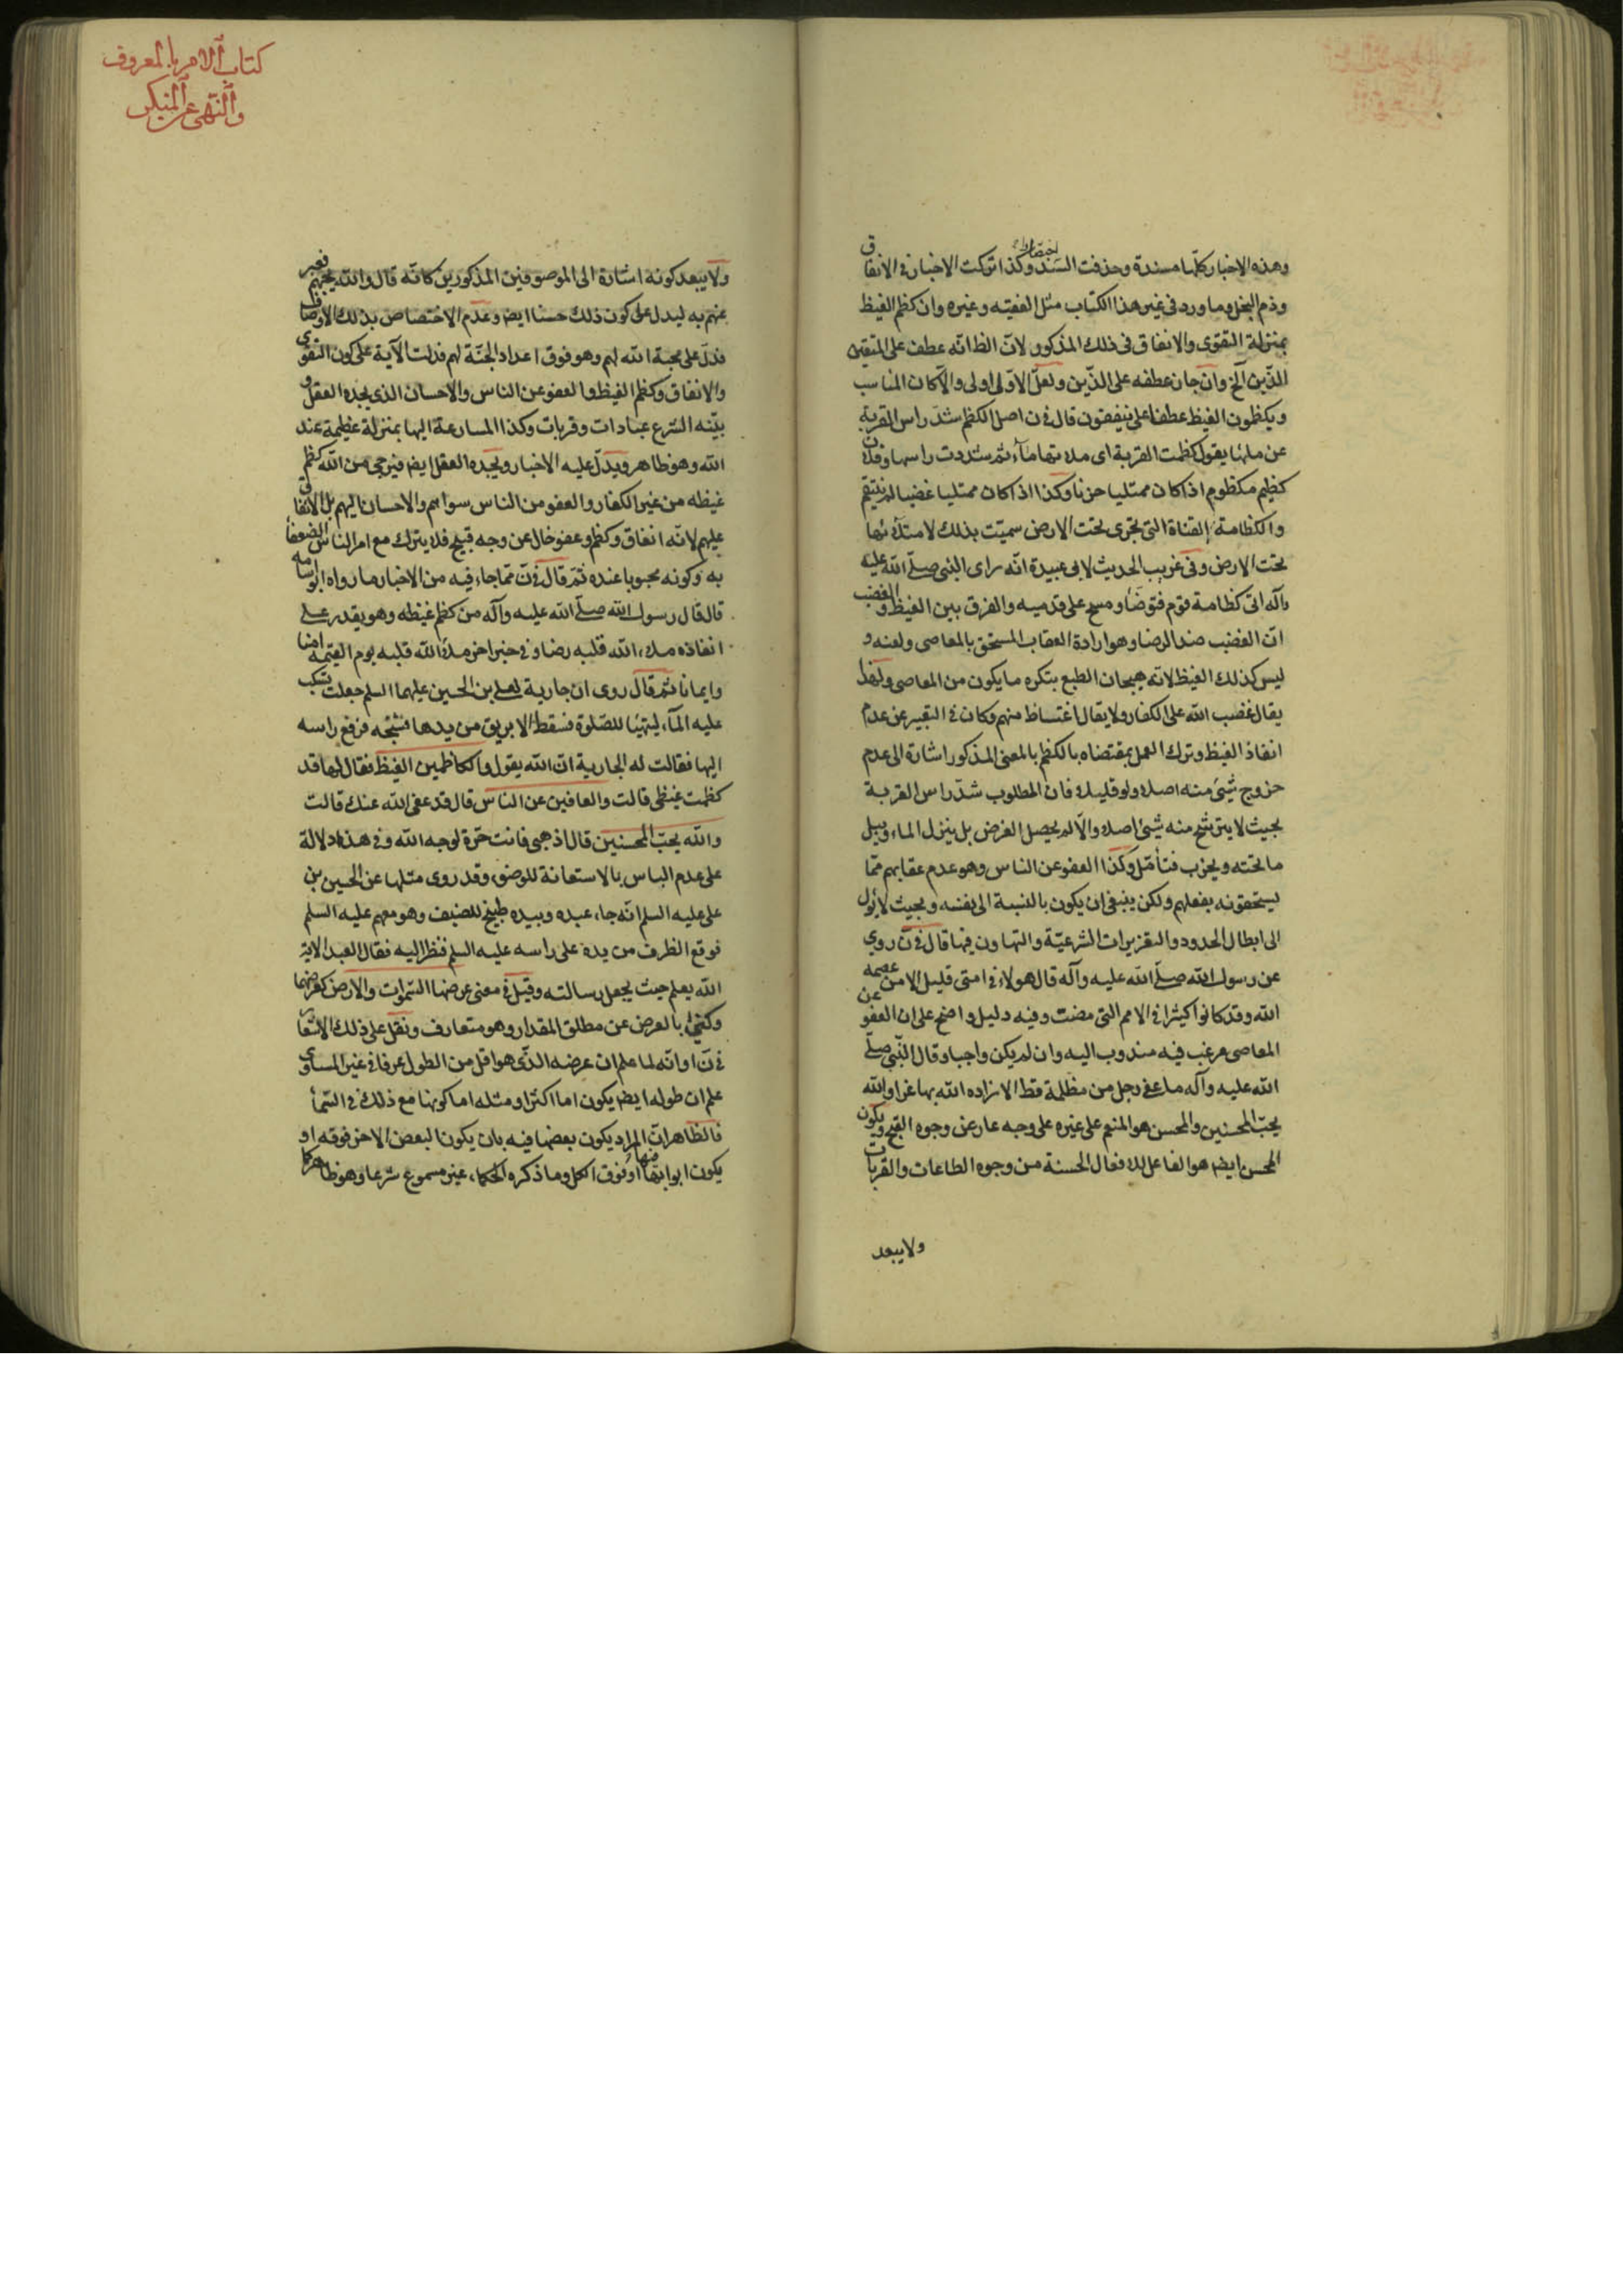 وهذه الاخبار كلّها مسندة وحذفت السّند اختصارا وكذا تركت الاخبار في الانفاق
وذم البخل وما ورد في غير هذا الكتاب مثل الفقيه وغيره وان كظم الغيظ
بمنزلة التقوى والانفاق في ذلك المذكور لانّ الظ انّه عطف على المتقين
الذّين الخ وان جاز عطفه على الذّين ولعلّ الاوّل اولى والّا كان المناسب
ويكظمون الغيظ عطفا على ينفقون قال في ن اصل الكظم شدّ راس القربة
عن ملئها يقول كظمت القربة اى ملاءتها ماآء ثم شددت راسها وفلان
كظيم مكظوم اذا كان ممتليا حزنا وكذا اذا كان ممتليا غضبا لم ينتقم
والكظامة القناة التى تجرى تحت الارض سميّت بذلك لامتلائها
تحت الارض وفي غريب الحديث لابى عبيدة انّه راى النبى صلّى الله عليه
وآله اتى كظامة قوم فتوضّا ومسح على قدميه والفرق بين الغيظ والغضب
انّ الغضب ضد الرضا وهو ارادة العقاب المستحق بالمعاصى ولعنه و
ليس كذلك الغيظ لانه هيجان الطبع بتكره ما يكون من المعاصى ولهذا
يقال غضب الله على الكفار ولا يقال اغتاظ منهم وكان في التعبير عن عدم
انفاذ الغيظ وترك العمل بمقتضاه بالكظم بالمعنى المذكور اشارة الى عدم
خروج شيئ منه اصلا ولو قليلا فان المطلوب شدّ راس القربة
بحيث لا يترشح منه شيئ اصلا والّا لم يحصل الغرض بل ينزل الماء ويبل
ما تحته ويخرب فتأمّل وكذا العفو عن الناس وهو عدم عقابهم ممّا
يستحقونه بفعلهم ولكن ينبغى ان يكون بالنسبة الى نفسه وبحيث لا يؤل
الى ابطال الحدود والتعزيرات الشرعيّة والتهاون فيها قال في ن روي
عن رسول الله صلّى الله عليه وآله قال هولاء في امتى قليل الا من عصمه
الله وقد كانوا كثيرا في الامم التى مضت وفيه دليل واضح على ان العفو عن
المعاصى مرغب فيه مندوب اليه وان لم يكن واجبا وقال النّبي صلّى
الله عليه وآله ما عفى رجل من مظلمة قط الا زاده الله بها عزا والله
يحبّ المحسنين والمحسن هو المنعم على غيره على وجه عار عن وجوه القبح ويكون
المحسن ايضا هو الفاعل للافعال الحسنة من وجوه الطاعات والقربات
ولا يبعد
كتاب الامر بالمعروف
والنّهى عن المنكر
ولا يبعد كونه اشارة الى الموصوفين المذكورين كانّه قال والله يحبّهم فعبر
عنهم به ليدل على كون ذلك حسنا ايض وعدم الاختصاص بذلك الاوصاف
فدلّ على محبة الله لهم وهو فوق اعداد الجنّة لهم فدلت الآية على كون التقوى
والانفاق وكظم الغيظ والعفو عن الناس والاحسان الذى يجده العقل و
بيّنه الشرع عبادات وقربات وكذا المسارعة اليها بمنزلة عظيمة عند
الله وهو ظاهر ويدلّ عليه الاخبار ويجده العقل ايض فيرجى من الله كظم
غيظه من غير الكفار والعفو من الناس سواهم والاحسان اليهم بل الانفاق
عليهم لانّه انفاق وكظم وعفو خال عن وجه قبيح فلا يترك مع امر الناس الضعفا
به وكونه محبوبا عنده ثمّ قال في ن ممّا جاء فيه من الاخبار ما رواه ابو امامه
قال قال رسول الله صلّى الله عليه وآله من كظم غيظه وهو يقدر على
انفاذه ملاء الله قلبه رضا وفي خبر اخر ملاء الله قلبه يوم القيمه امنا
وايمانا ثم قال روى ان جارية لعلى بن الحسين عليهما السلم جعلت تسكب
عليه الماآء ليتهيّا للصّلوة فسقط الابريق من يدها فشجّه فرفع راسه
اليها فقالت له الجارية انّ الله يقول والكاظمين الغيظ فقال لها قد
كظمت غيظى قالت والعافين عن الناس قال قد عفى الله عنك قالت
والله يحبّ المحسنين قال اذهبى فانت حرّة لوجه الله وفي هذه دلالة
على عدم الباس بالاستعانة للوضوء وقد روى مثلها عن الحسين بن
على عليه السلم انّه جاء عبده وبيده طبيخ للضيف وهو معهم عليه السلم
فوقع الظرف من يده على راسه عليه السلم فنظر اليه فقال العبد الاية
الله يعلم حيث يجعل رسالته وقيل في معنى عرضها السّموات والارض كعرضهما
وكنّي بالعرض عن مطلق المقدار وهو متعارف ونقل على ذلك الاشعار
في ن او انّه لما علم ان عرضه الذّى هو اقل من الطول عرفا في غير المساوى
علم ان طوله ايض يكون اما اكثر او مثله اما كونها مع ذلك في السّماء
فالظاهر انّ المراد يكون بعضها فيه بان يكون البعض الاخر فوقه او
يكون ابوابها فيها او فوق الكل وما ذكره الحكماء غير مسموع شرعا وهو ظاهر كما